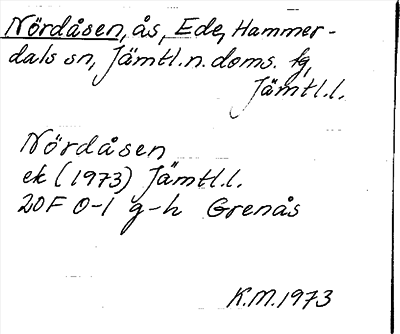 Nördåsen, ås, Ede, Hammer-
dals sn, Jämtl.n.doms. fg,
Jämtl.l.
Nördåsen
ek (1973) Jämtl.l.
20F 0-1 g-h Grenås
K.M.1973